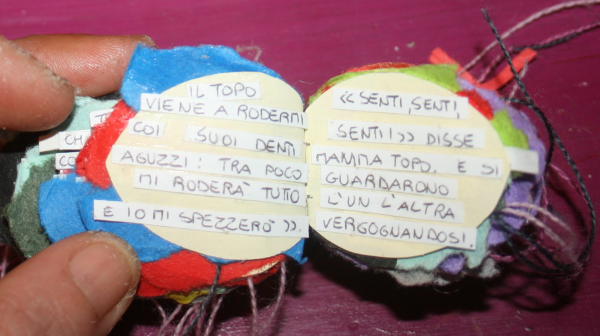 IL TOPO
VIENE A RODERMI
COI SUOI DENTI
AGUZZI: TRA POCO
MI RODERÀ TUTTO
E IO MI SPEZZERÒ».
«SENTI, SENTI,
SENTI!» DISSE
MAMMA TOPO. E SI
GUARDARONO
L'UN L'ALTRA
VERGOGNANDOSI.